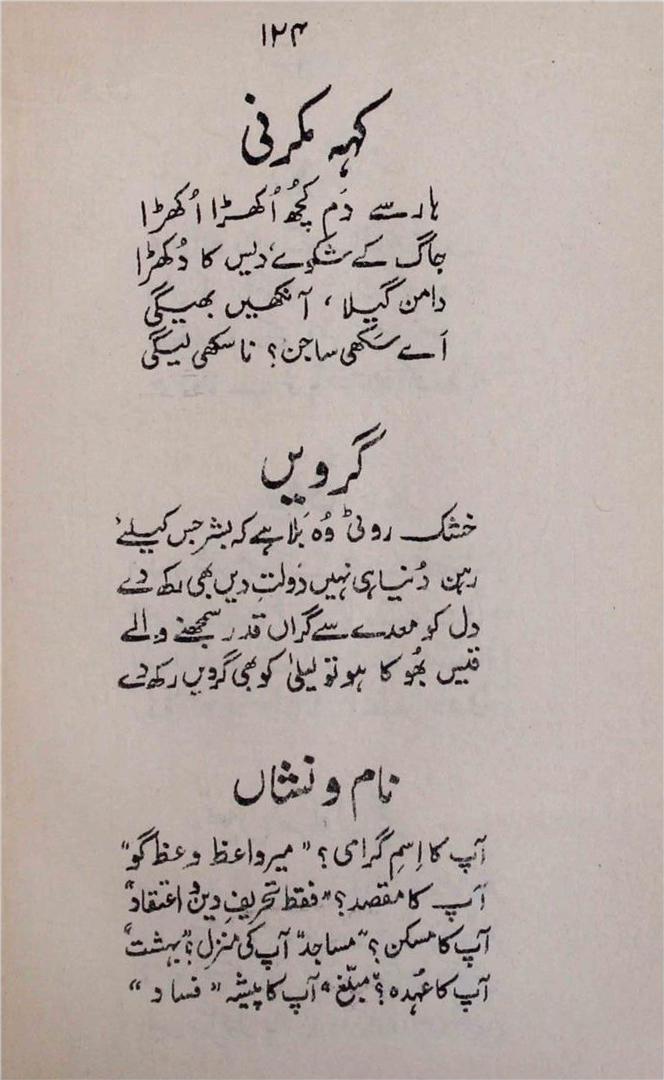 ۱۲۴
کہہ مکرنی
ہار سے دَم کچھُ اُکھڑا اُکھڑا
جاگ کے شکوے دیس کا دُکھڑا
دامن گیلا، آنکھیں بھیگی
اَے سَکھی ساجن؟ نا سکھی لیگی
گرویں
خشک روٹی وُہ بَلا ہے کہ بشر جس کیلئے
رہن دُنیا ہی نہیں دَولتِ دیں بھی رکھ دے
دل کو معدے سے گراں قدر سمجھنے والے
قیس بھُوکا ہو تو لیلیٰ کو بھی گرویں رکھ دے
نام و نشاں
آپ کا اِسمِ گرامی؟ "میر واعظ وعظ گو"
آپ کا مقصد؟ "فقط تحریفِ دین و اعتقاد"
آپ کا مسکن؟ "مساجد" آپ کی منزل؟ "بہشت"
آپ کا عُہدہ؟ "مبلّغ" آپ کا پیشہ "فساد"